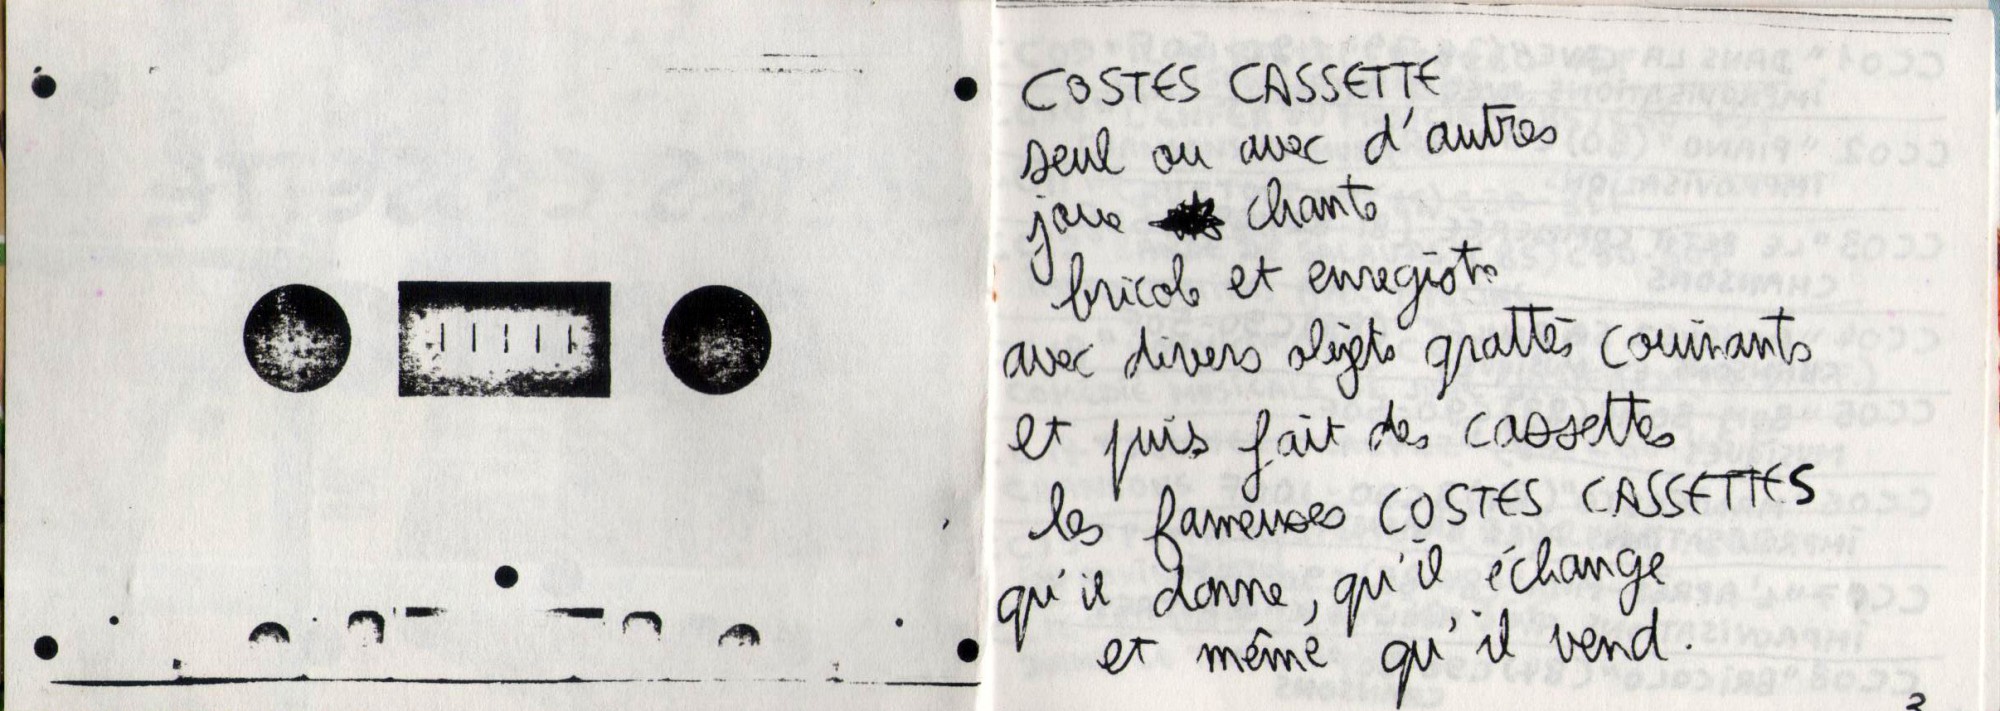 COSTES CASSETTE
seul ou avec d'autres
joue chante
bricole et enregistre
avec divers objets grattés couinants
et puis fait des cassettes
les fameuses COSTES CASSETTES
qu'il donne, qu'il échange
et même qu'il vend.
3